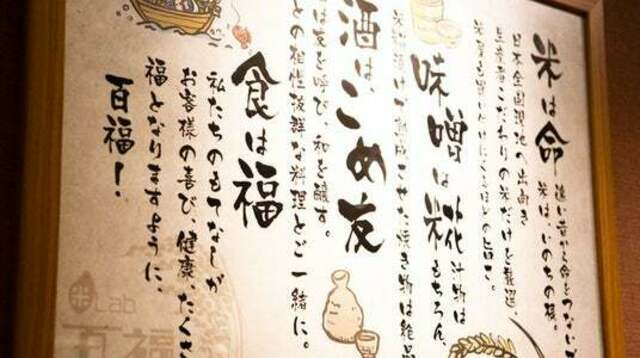 米は命
遠い昔から命をつないで
米は、いのちの根。
日本全国現地へ出向き
生産者こだわりの米だけを厳選、
味噌は糀
汁物は
もちろん、
熟成させた焼き物は絶品
酒は、こめ友
酒は友を呼び、和を醸す。
との相性抜群な料理とご一緒に。
食は福
私たちのもてなしが
お客様の喜び、健康、たくさ
福となりますように、
百福!
米Lab
百福